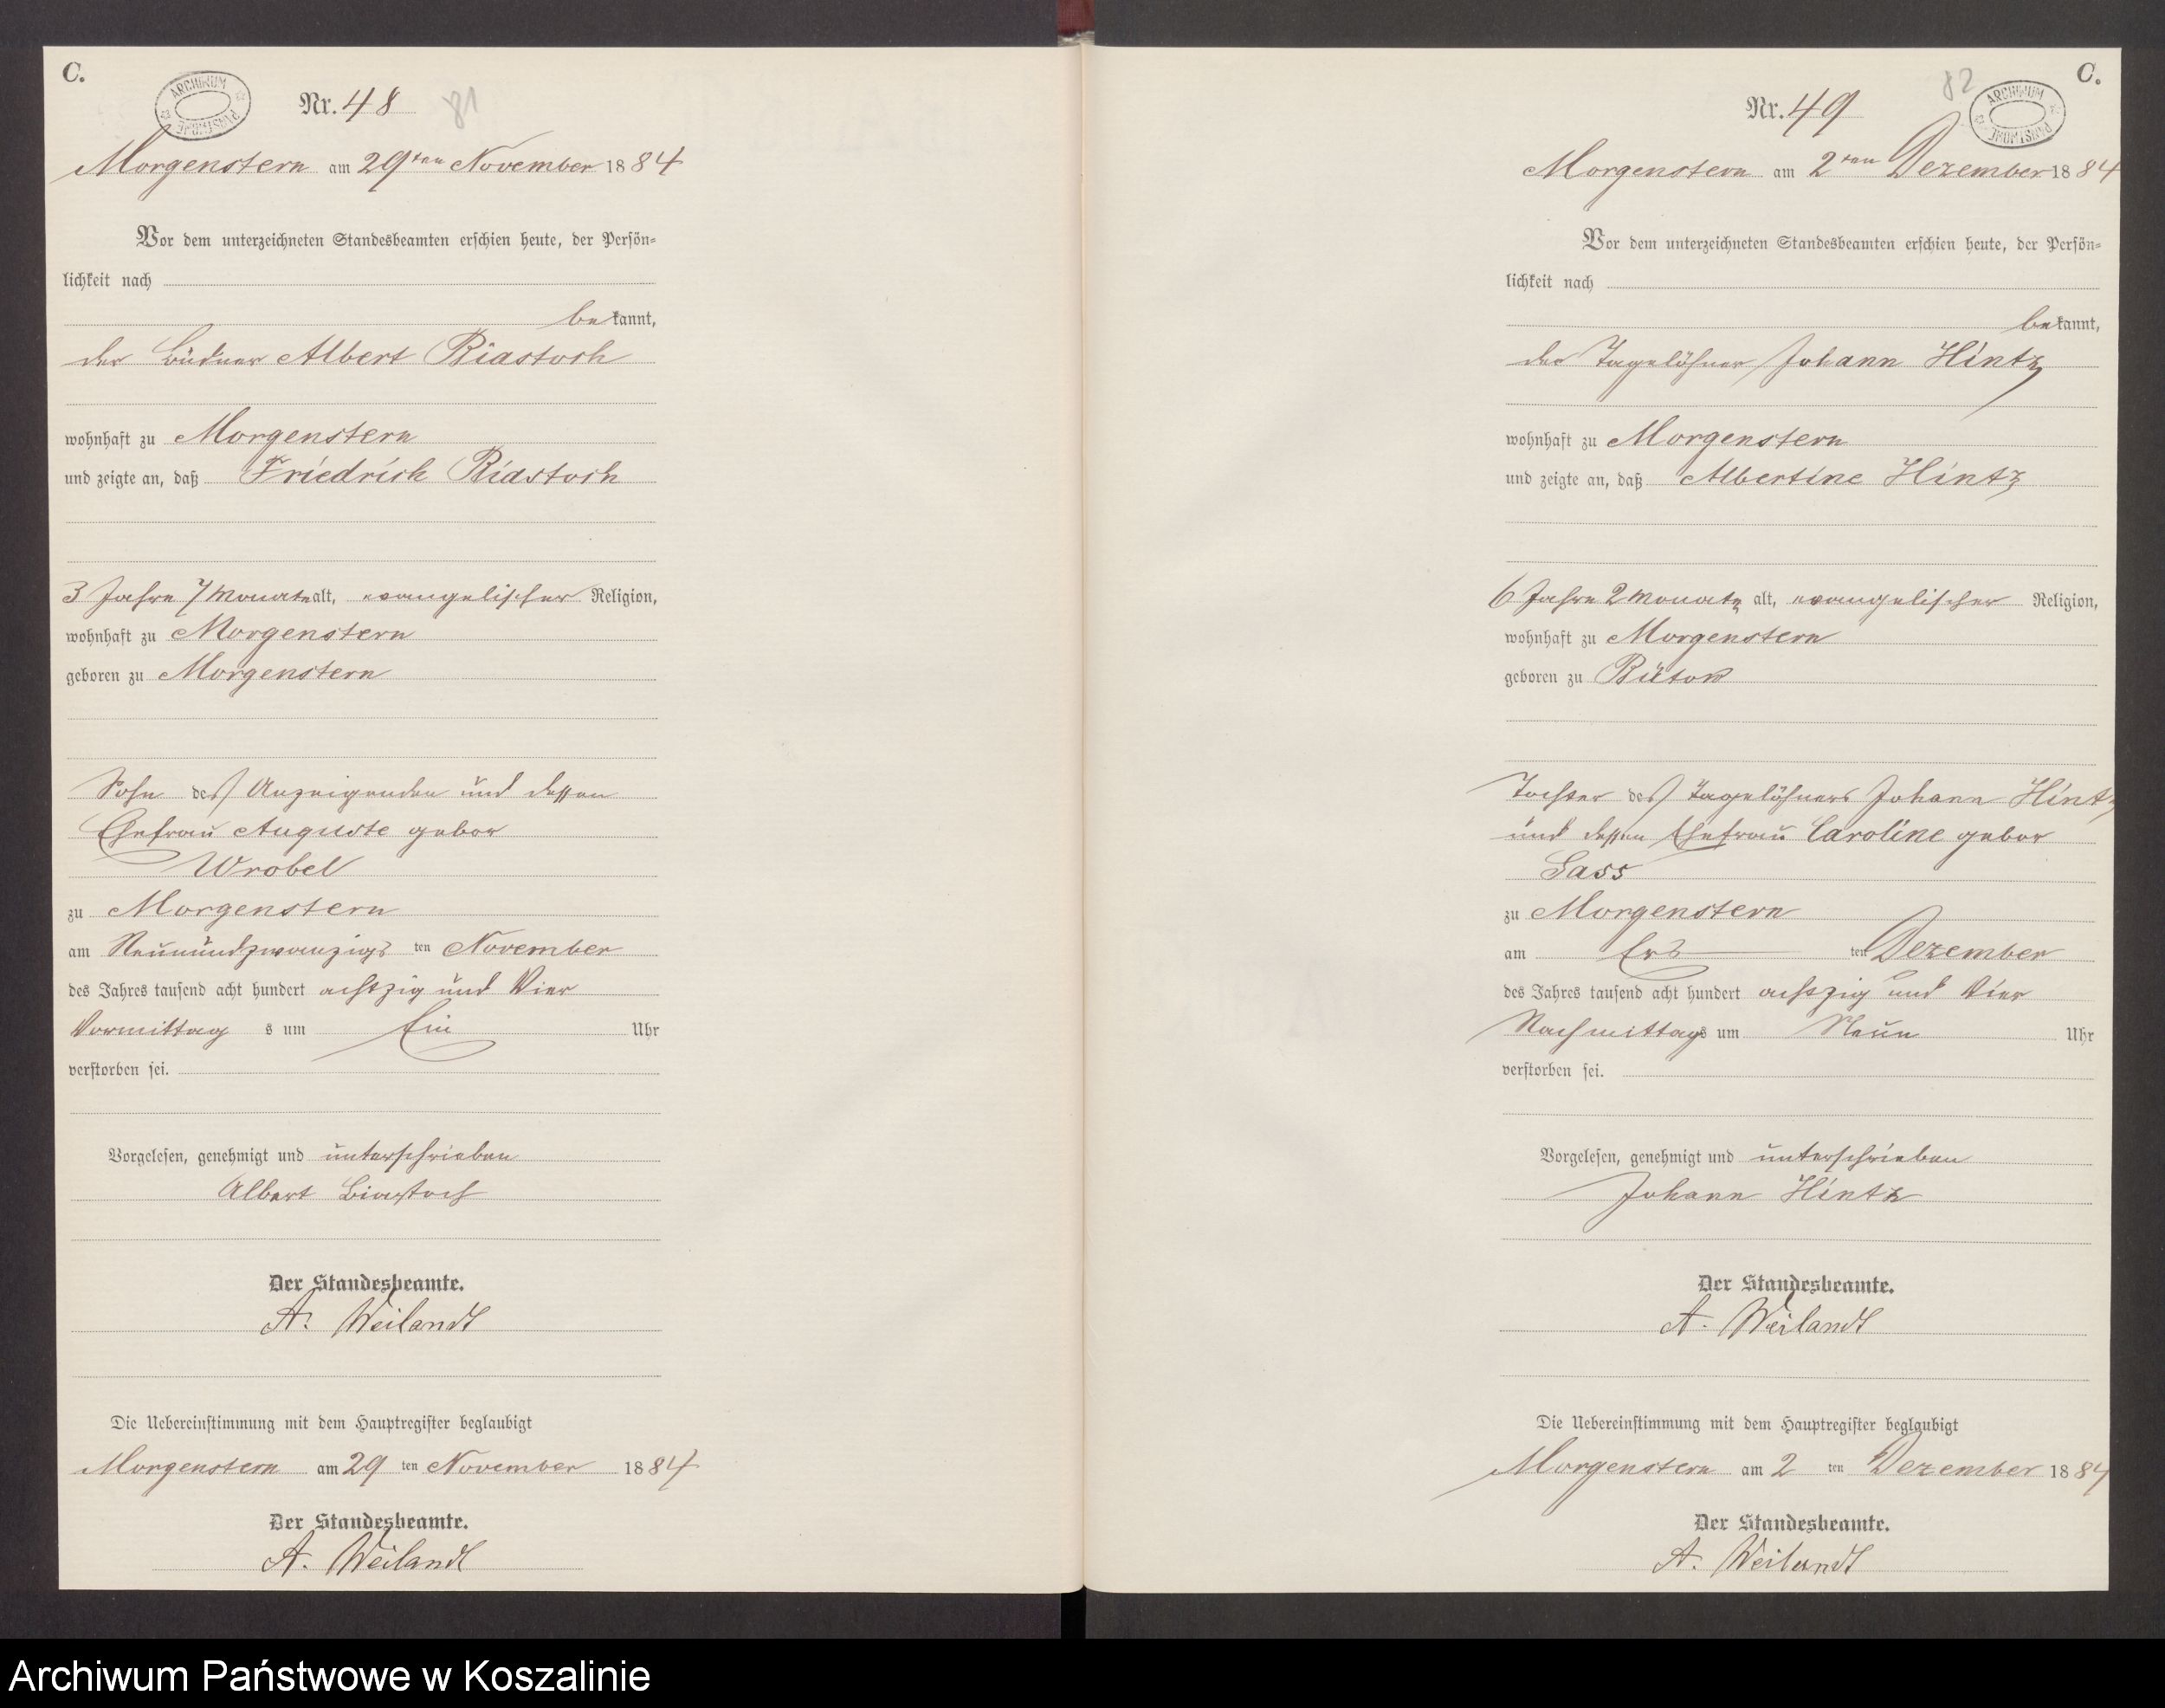 C.
ARCHIWUM PAŃSTWOWE
Nr. 48
81
Morgenstern am 29ten November 1884
Vor dem unterzeichneten Standesbeamten erschien heute, der Persön-
lichkeit nach
bekannt,
der Büdner Albert Biastoch
wohnhaft zu Morgenstern
und zeigte an, daß Friedrich Biastoch
3 Jahre 7 Monate alt, evangelischer Religion,
wohnhaft zu Morgenstern
geboren zu Morgenstern
Sohn des Anzeigenden und dessen
Ehefrau Auguste gebor
Wrobel
zu Morgenstern
am Neunundzwanzigs ten November
des Jahres tausend acht hundert achtzig und Vier
Vormittag s um Ein Uhr
verstorben sei.
Vorgelesen, genehmigt und unterschrieben
Albert Biastoch
Der Standesbeamte.
A. Weilandt
Die Uebereinstimmung mit dem Hauptregister beglaubigt
Morgenstern am 29 ten November 1884
Der Standesbeamte.
A. Weilandt
C.
82
ARCHIWUM PAŃSTWOWE
Nr. 49
Morgenstern am 2ten Dezember 1884
Vor dem unterzeichneten Standesbeamten erschien heute, der Persön-
lichkeit nach
bekannt,
der Tagelöhner Johann Hintz
wohnhaft zu Morgenstern
und zeigte an, daß Albertine Hintz
6 Jahre 2 Monate alt, evangelischer Religion,
wohnhaft zu Morgenstern
geboren zu Bütow
Tochter des Tagelöhners Johann Hintz
und dessen Ehefrau Caroline gebor
Sass
zu Morgenstern
am Ers ten Dezember
des Jahres tausend acht hundert achtzig und Vier
Nachmittags um Neun Uhr
verstorben sei.
Vorgelesen, genehmigt und unterschrieben
Johann Hintz
Der Standesbeamte.
A. Weilandt
Die Uebereinstimmung mit dem Hauptregister beglaubigt
Morgenstern am 2 ten Dezember 1884
Der Standesbeamte.
A. Weilandt
Archiwum Państwowe w Koszalinie